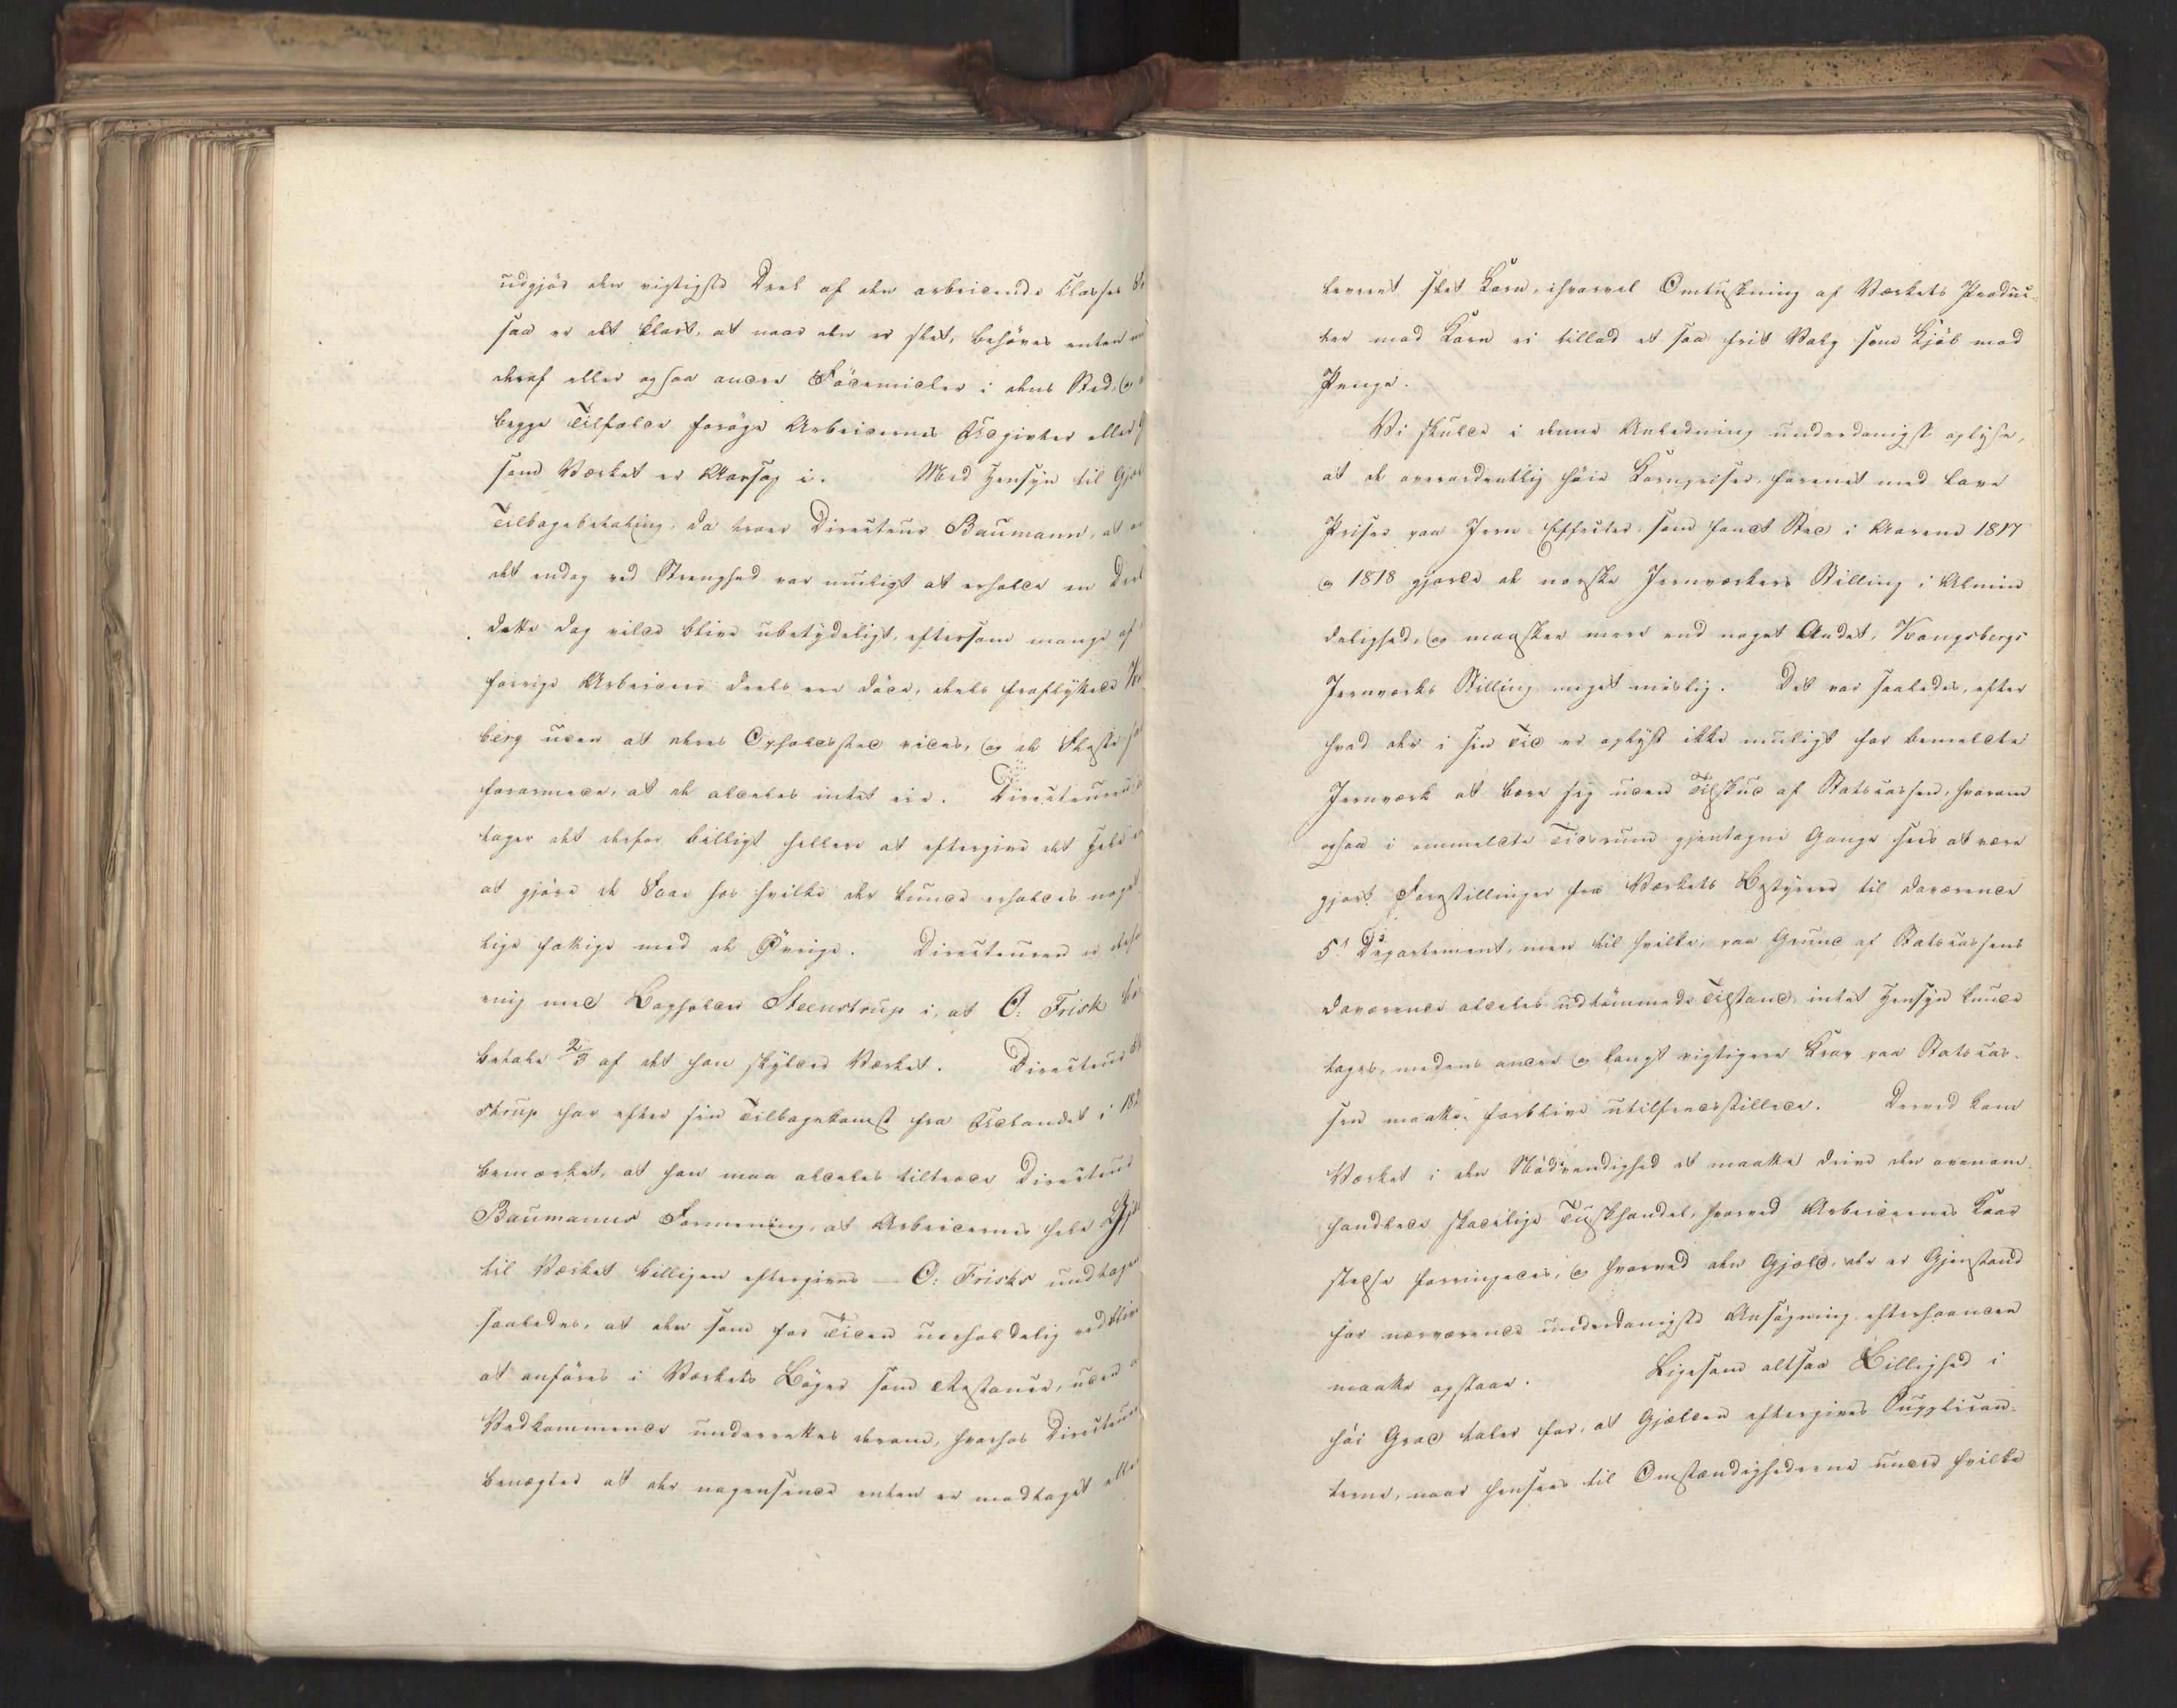 udgjør den vigtigste Deel af den arbeidende Classes
saa er det klart, at naar den er slet, behøves enten
deraf eller ogsaa andre Födemidler i dens Sted, og
begge Tilfælde forøge Arbeidernes Udgivter eller
som Værket er Aarsag i. Med Hensyn til Gjæl
Tilbagebetaling, da troer Directeur Baumann, at
det endog ved Strenghed var muligt at erholde en Deel
dette dog vilde blive ubetydeligt, eftersom mange af
forrige Arbeidere deels ere döde, deels fraflyttede
berg uden at deres Opholdssted vides, og de Fleste
forarmede, at de aldeles intet eie. Directeuren
tager det derfor billigt hellere at eftergive det Hele
at gjöre de Faae hos hvilke der kunde erholdes noget
lige fattige med de Övrige. Directeuren er
enig med Bogholder Steenstrup i, at O: Frisk
betale 2/3 af det han skylder Værket. Directeur
strup har efter sin Tilbagekomst fra Udlandet i 182
bemærket, at han maa aldeles tiltræde Directeur
Baumanns Formening, at Arbeidernes hele
til Værket billigen eftergives – O: Frisks undtagen
saaledes, at den som for Tiden uerholdelig vedbliv
at anföres i Værkets Böger som Restance, uden
Vedkommende underrettes derom, hvorhos Directeur
benægter at der nogensinde enten er modtaget eller
leveret slet Korn, ihvorvel Omtuskning af Værkets Produc-
ter mod Korn ei tillod et saa frit Valg som Kjöb mod
Penge.
Vi skulde i denne Anledning underdanigst oplyse,
at de overordentlig höie Kornpriser, forenet med lave
Priser paa Jern-Effecter som fandt Sted i Aarene 1817
og 1818 gjorde de norske Jernværkers Stilling i Almin
delighed, og maaskee mere end noget Andet, Kongsbergs
Jernværks Stilling meget mislig. Det var saaledes, efter
hvad der i sin Tid er oplyst ikke muligt for bemeldte
Jernværk at bære sig uden Tilskud af Statscassen, hvorom
ogsaa i ommeldte Tidsrum gjentagne Gange sees at være
gjort Forestillinger fra Værkets Bestyrere til daværende
5t Departement, men til hvilke, paa Grund af Statscassens
daværende aldeles udtömmede Tilstand, intet Hensyn kunde
tages, medens andre og langt vigtigere Krav paa Statscas-
sen maatte forblive utilfredsstillede. Derved kom
Værket i den Nödvendighed at maatte drive den ovenom-
handlede skadelige Tuskhandel, hvorved Arbeidernes Kaar
stedse forringedes, og hvorved den Gjæld, der er Gjenstand
for nærværende underdanigste Ansögning, efterhaanden
maatte opstaae. Ligesom altsaa Billighed i
höi Grad taler for, at Gjælden eftergives Supplican-
terne, naar henses til Omstændighederne under hvilke